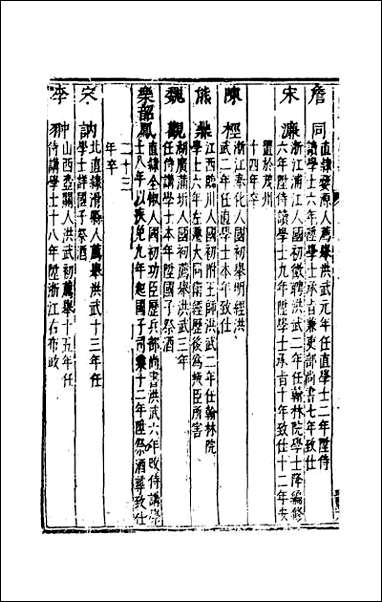 詹同
直隸婺源人薦舉洪武元年任直學士二年陞侍
讀學士六年陞學士承旨兼吏部尚書七年致仕
宋濂
浙江浦江人國初徵聘洪武二年任翰林院學士降編修
六年陞侍講學士九年陞學士承旨十年致仕十二年安
置於茂州
十四年卒
陳桱
浙江奉化人國初舉明經洪
武二年任直學士本年致仕
熊鼎
江西臨川人國初附王師洪武二年任翰林院
學士六年左遷大同衛經歷後為
臣所害
魏觀
湖廣蒲圻人國初薦舉洪武三年
任侍講學士本年陞國子祭酒
樂韶鳳
直隸全椒人國初功臣歷兵部尚書洪武六年改侍講學
士八年以疾免九年起國子司業十二年陞祭酒尋致仕
二十三
年卒
宋訥
北直隸滑縣人薦舉洪武十三年任
學士詳國子祭酒
李翀
山西壺關人洪武初薦舉十五年任
侍講學士十八年陞浙江右布政